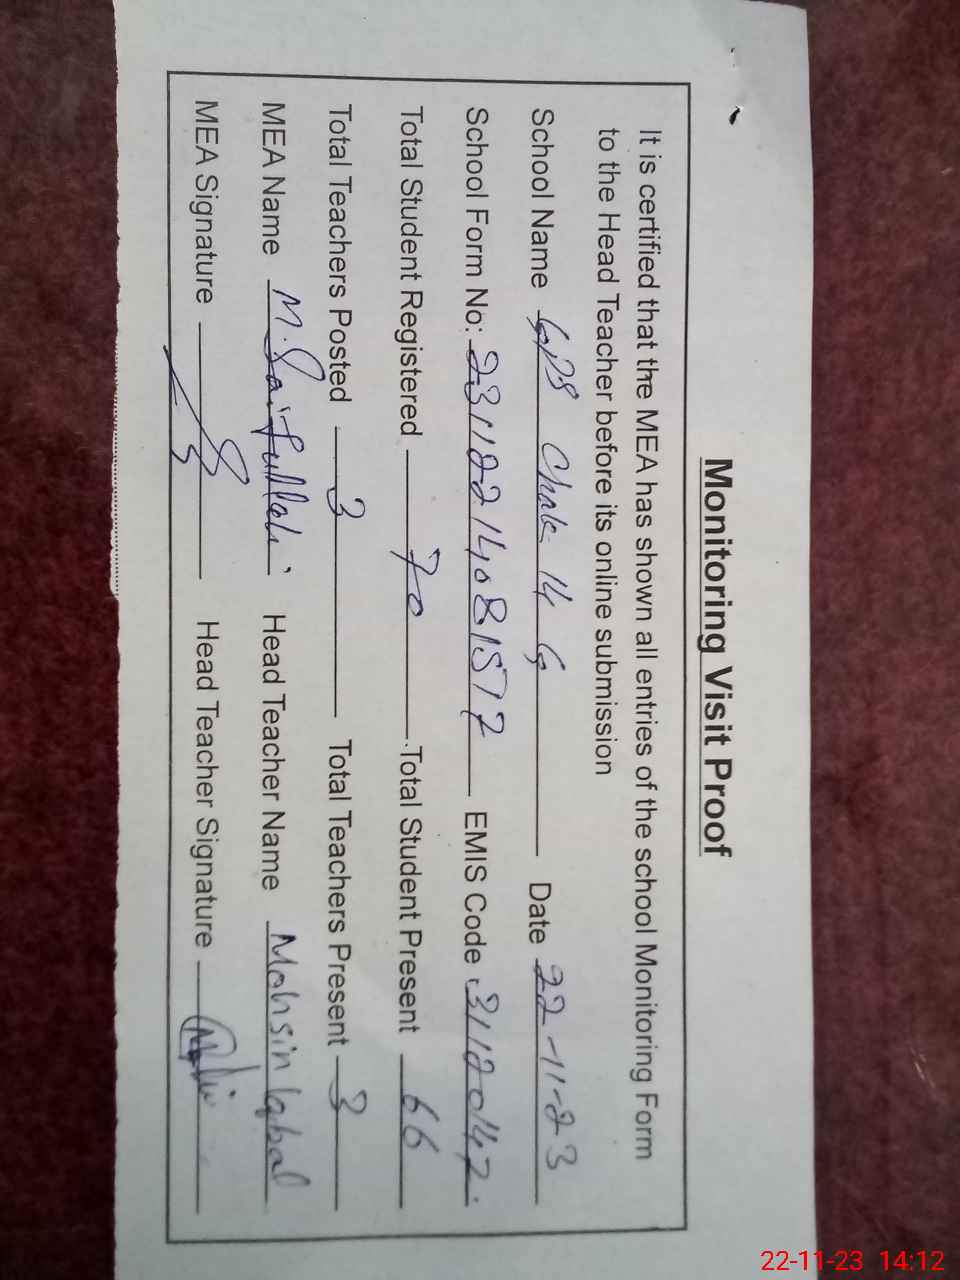 Monitoring Visit Proof
It is certified that the MEA has shown all entries of the school Monitoring Form
to the Head Teacher before its online submission
School Name GPS Chak 14 G Date 22-11-23
School Form No: 23112214081577 EMIS Code 31120147
Total Student Registered 70 Total Student Present 66
Total Teachers Posted 3 Total Teachers Present 3
MEA Name M. Saifullah Head Teacher Name Mohsin Iqbal
MEA Signature Head Teacher Signature
22-11-23 14:12